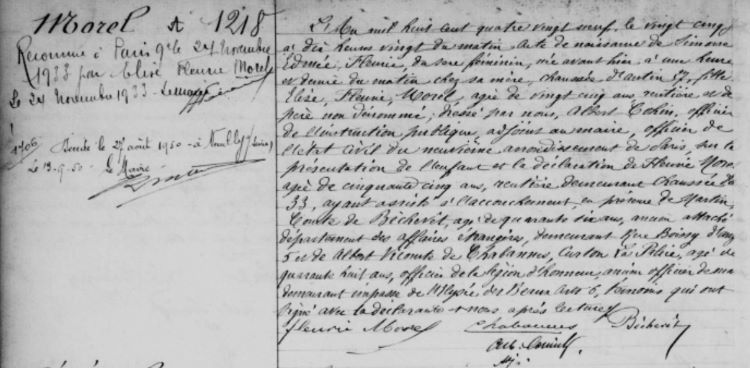 Morel A 1218
Reconnue à Paris 9e le 24 novembre
1933 par Elise Fleurie Morel
Le 24 novembre 1933
1706
Décédée le 27 août 1950 à Neuilly s/ Seine)
Le 13-9-50 Le Maire
L'An mil huit cent quatre vingt neuf, le vingt cinq
à dix heures vingt du matin. Acte de naissance de Simone
Edmée, Fleurie, du sexe féminin, née avant hier à une heure
et demie du matin chez sa mère, chaussée d'Antin 33, fille
Elise, Fleurie, Morel agée de vingt cinq ans, rentière et de
père non dénommé; dressé par nous, Albert Cohin, officier
de l'instruction publique, adjoint au maire, officier de
l'état civil du neuvième arrondissement de Paris, sur la
présentation de l'enfant et la déclaration de Fleurie Mor
agée de cinquante cinq ans, rentière demeurant chaussée
33, ayant assisté à l'accouchement en présence de Martin,
Comte de Béchevêt, agé de quarante six ans, ancien attaché
département des affaires étrangères, demeurant Rue Boissy d'
5 et de Albert Vicomte de Chabannes, Curton La Palice, agé de
quarante huit ans, officier de la légion d'honneur, ancien officier de
demeurant impasse de l'Elysée des Beaux Arts 6, témoins qui ont
signé avec la déclarante et nous après lecture
Fleurie Morel Chabannes Béchevêt